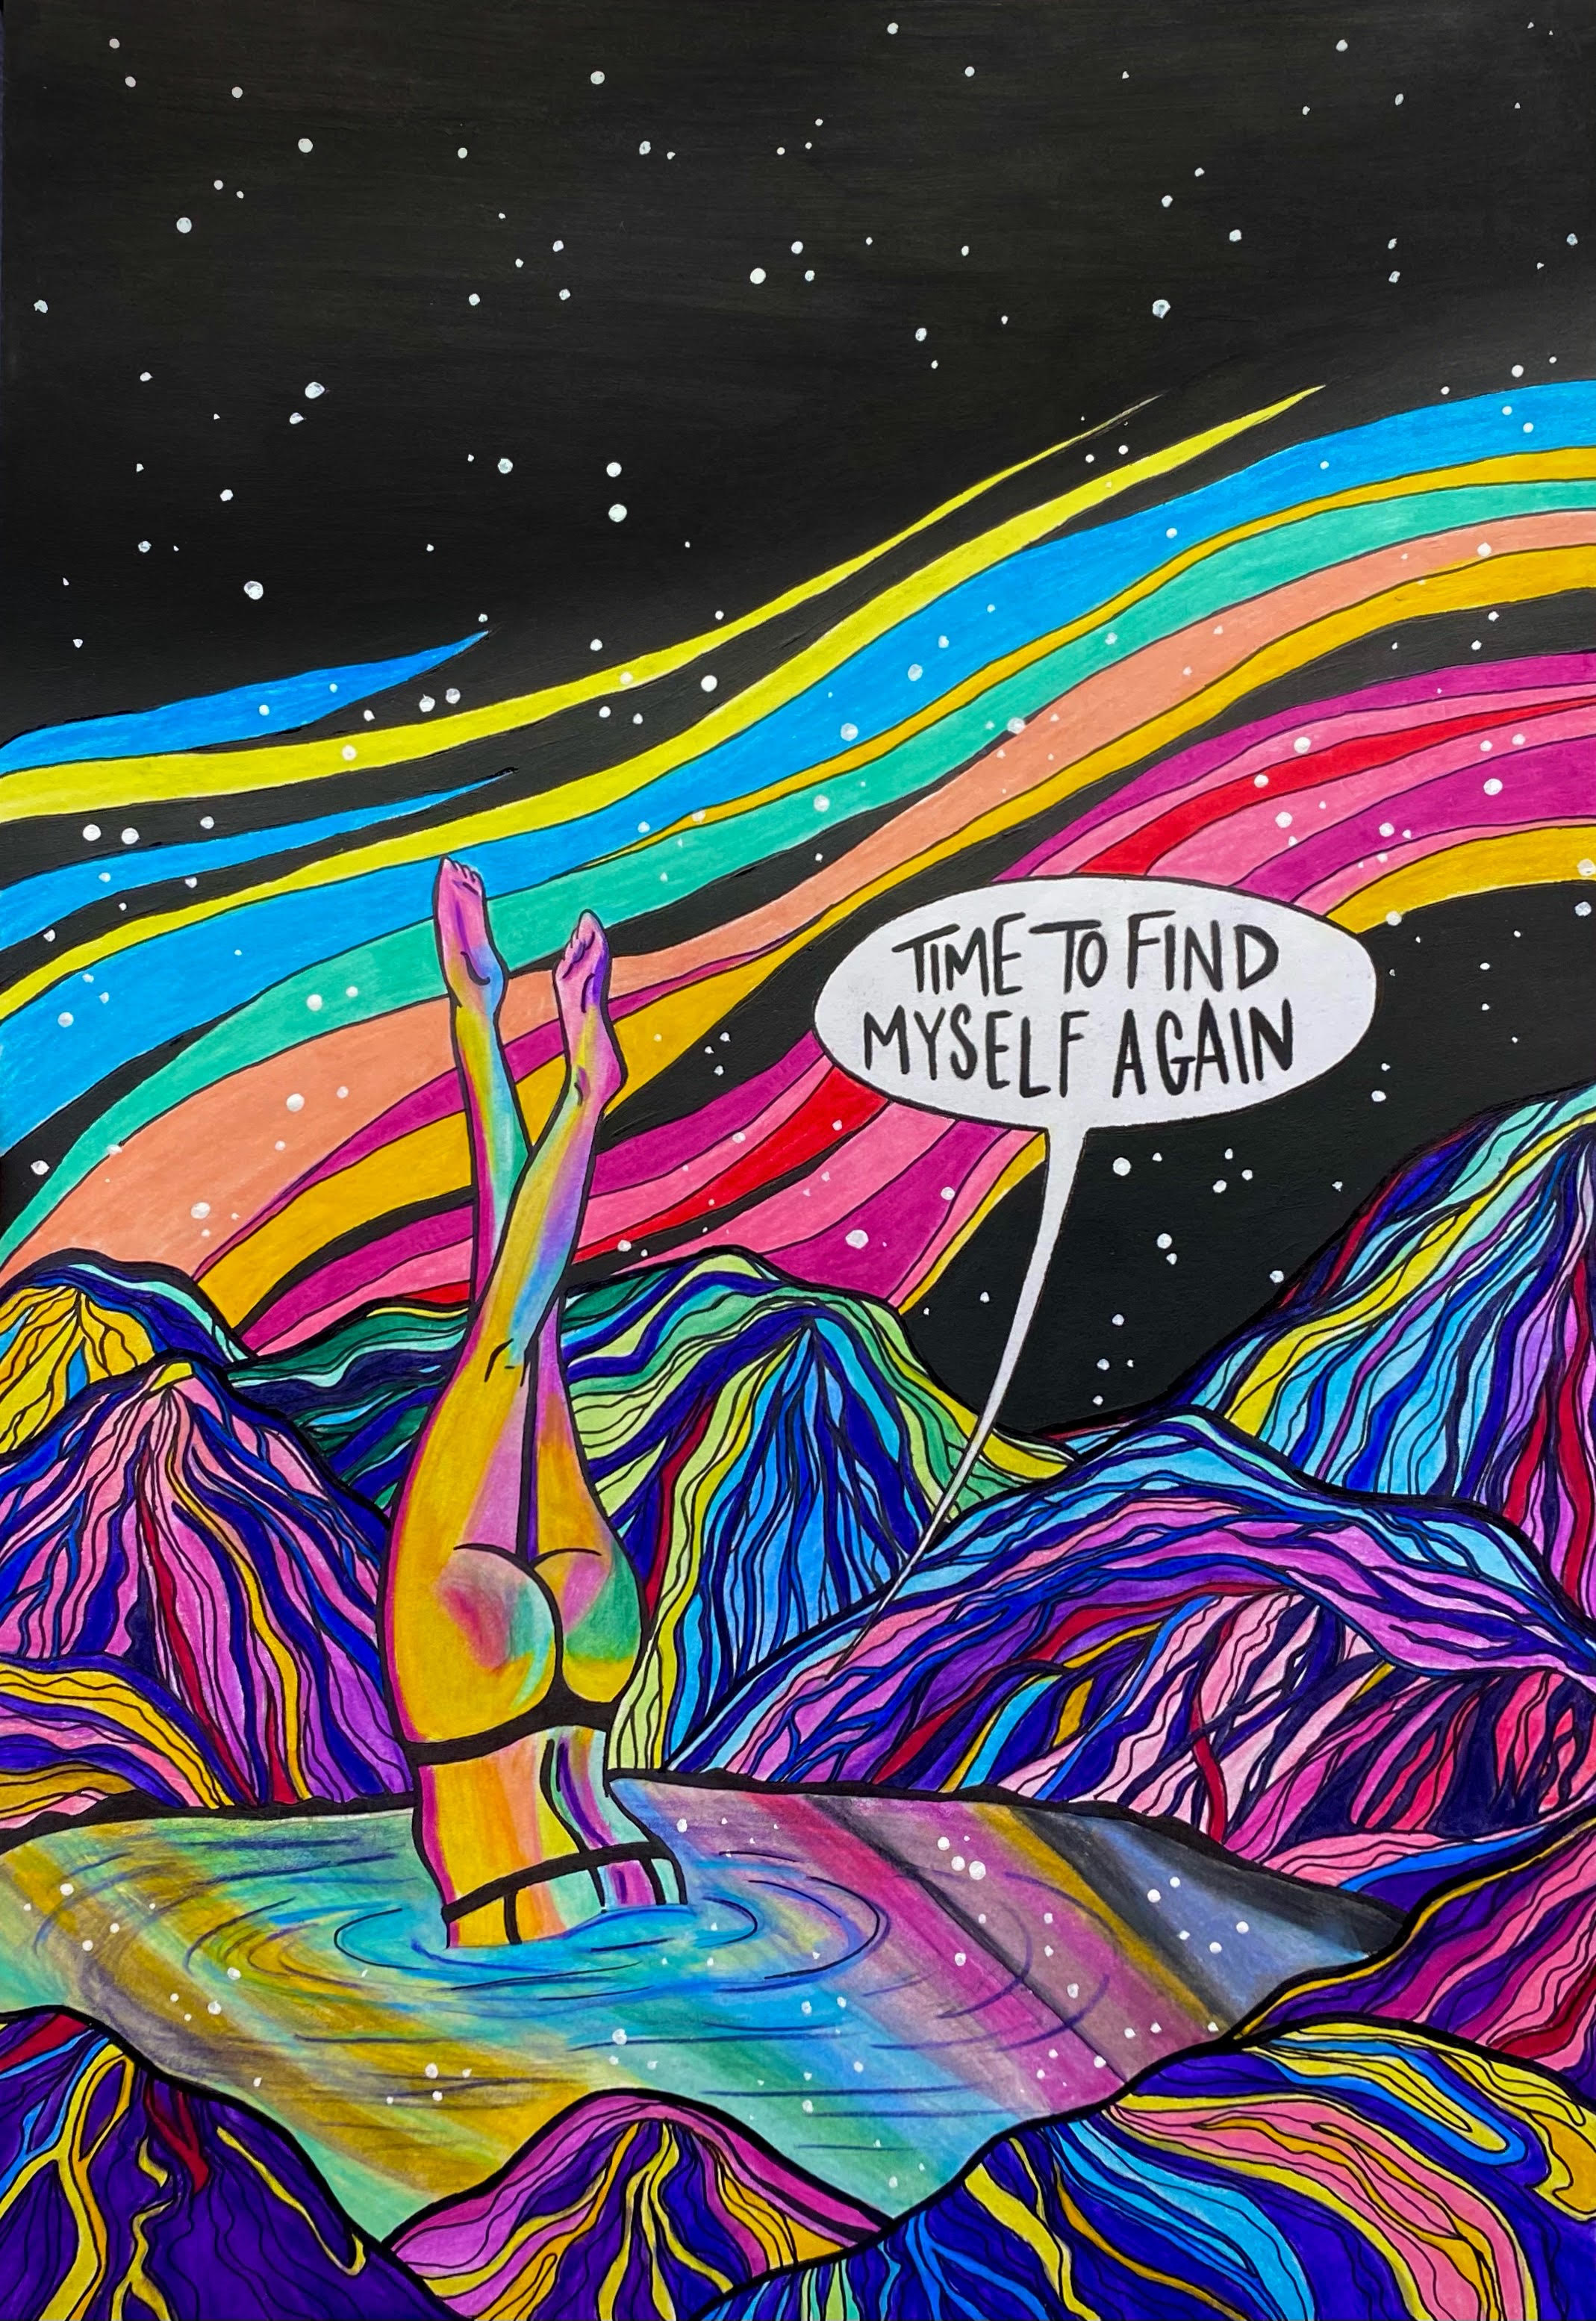 TIME TO FIND
MYSELF AGAIN